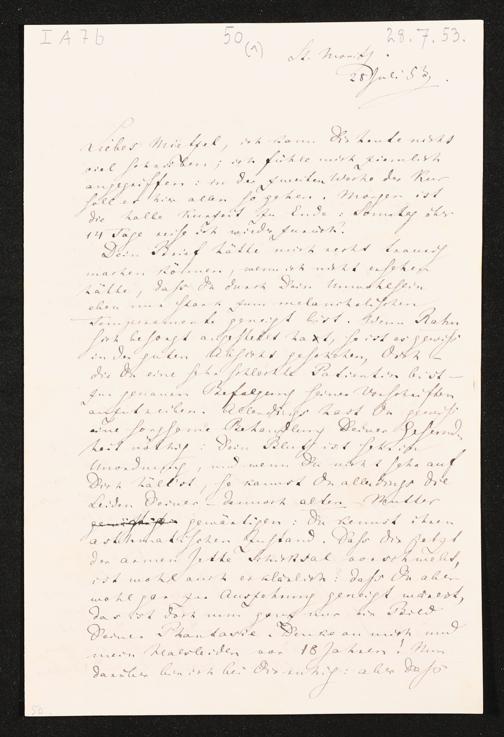 I A 7b 50 (1) 28.7.53.
St. Moritz.
28 Juli 53.
Liebes Mietzel, ich kann Dir heute nicht
viel schreiben; ich fühle mich ziemlich
angegriffen: in der zweiten Woche der Kur
soll es hier allen so gehen. Morgen ist
die halbe Kurzeit zu Ende: Sonntag über
14 Tage reise ich wieder zurück.
Dein Brief hätte mich recht traurig
machen können, wenn ich nicht ersehen
hätte, daß Du durch Dein Unwohlsein
eben nur stark zum melancholischen
Temperamente geneigt bist. Wenn Rahn
sich besorgt angestellt hat, so ist es gewiß
in der guten Absicht geschehen, Dich –
die Du eine sehr schlechte Patientin bist –
zur genauen Befolgung seiner Vorschriften
anzutreiben. Allerdings hast Du gewiß
eine sorgsame Behandlung Deiner Gesund-
heit nöthig: Dein Blut ist
Unordnung, und wenn Du nicht sehr auf
Dich hältst, so kannst Du allerdings die
Leiden Deiner – dennoch alten – Mutter
gewärtigen: Du kennst ihren
asthmatischen Zustand. Daß Dir jetzt
der armen Jette Schicksal vorschwebt,
ist wohl auch erklärlich: daß Du aber
wohl gar zur Auszehrung geneigt wärest,
das ist doch nun ganz nur ein Bild
Deiner Phantasie. Denke an mich und
mein Halsleiden vor 18 Jahren! Nun
darüber bin ich bei Dir ruhig: aber daß
50.